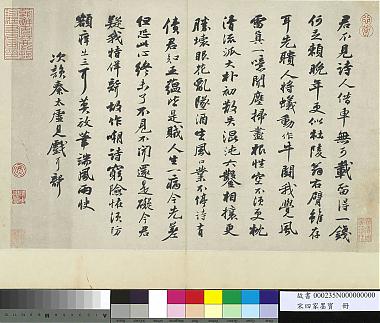 君不見詩人借車無可載留得一錢
何足賴晚年更似杜陵翁右臂雖存
耳先聵人將蟻動作牛鬥我覺風
雷真一噫聞塵掃盡根性空不須更枕
清流派大朴初散失混沌六鑿相攘更
勝壞眼花亂墜酒生風口業不停詩有
債君知五蘊皆是賊人生一病今先差
但恐此心終未了不見不聞還是礙今君
疑我特佯聾故作嘲詩窮險怪須防
額癢出三耳莫放筆端風雨快
次韻秦太虛見戲耳聾
故書 000235N000000000
宋四家墨寶 冊